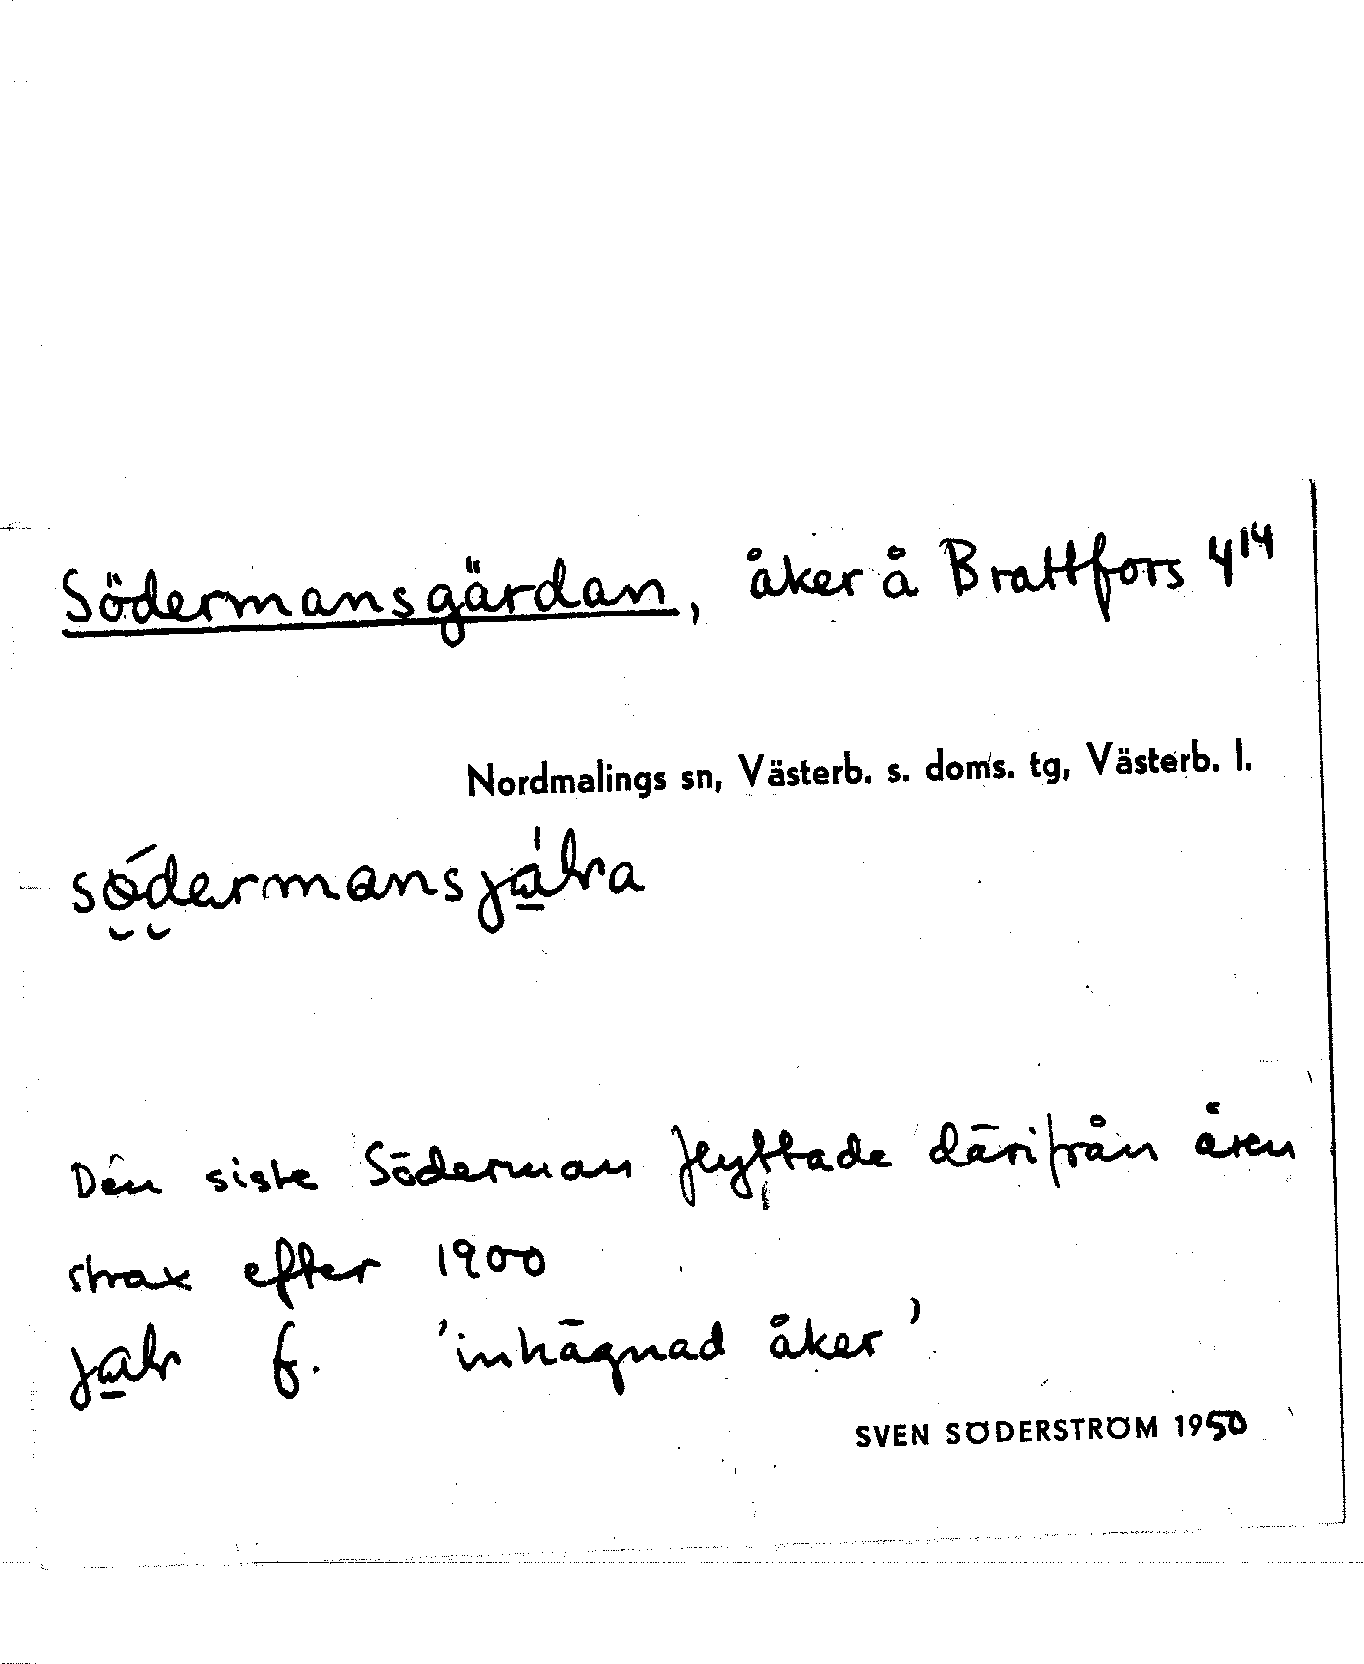 Södermansgärdan, åker å Brattfors 4¹⁴
Nordmalings sn, Västerb. s. doms. tg, Västerb. l.
Den siste Söderman flyttade därifrån åren
strax efter 1900
f. 'inhägnad åker'
SVEN SÖDERSTRÖM 1950